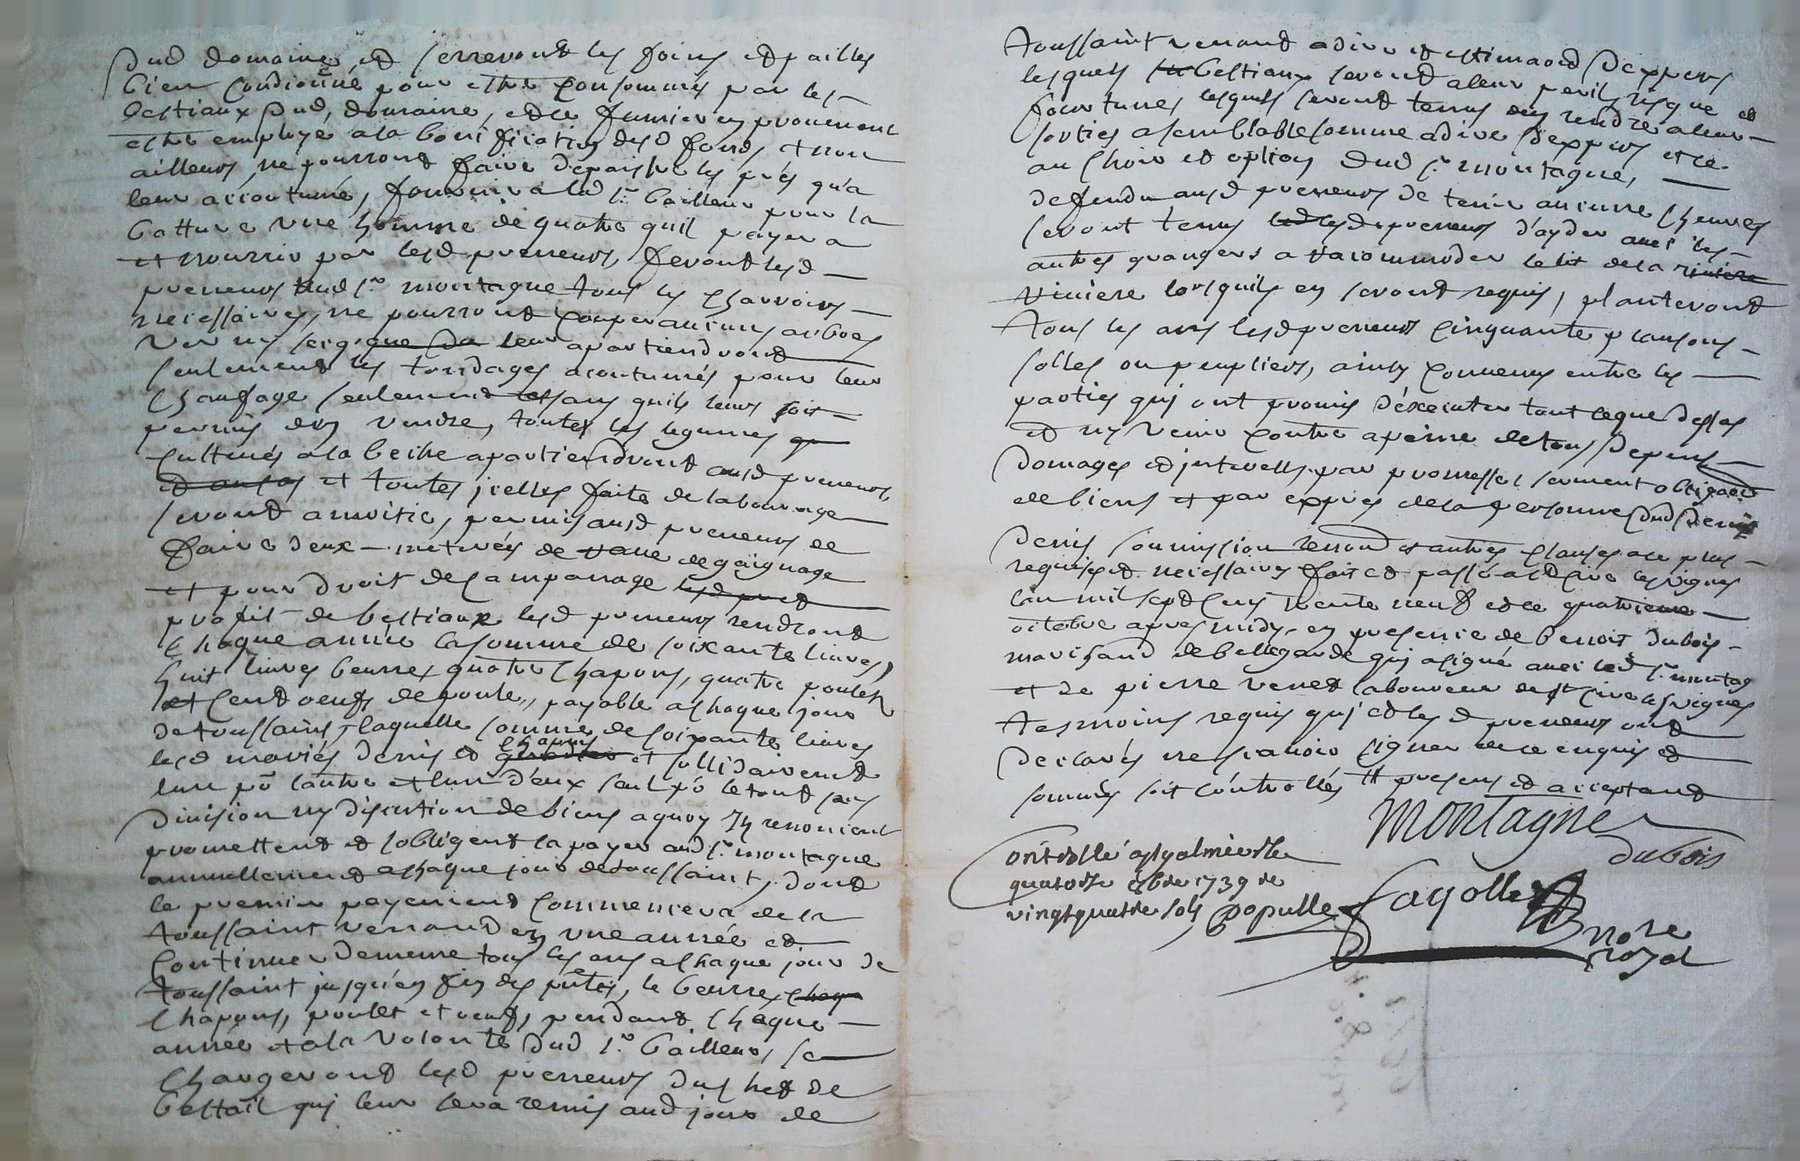 dud domaine, et serreront les foins et pailles
bien conditionné pour estre consommés par les
bestiaux dud. domaine, et le fumier en provenant
estre employé a la bonification desd fonds et non
ailleurs, ne pourront faire depaistre les prés qu'a
leur accoutumé, fournira led sr. bailleur pour la
batture une homme de quatre quil payera
et nourriv par lesd preneurs, feront lesd
preneurs dud sr. montagne tous les charrois
necessaires, ne pourront couper aucuns arbres
ver ny secq que leur apartiendront
seulement les tondages acoutumés pour leur
chaufage seulement sans quils leurs soit
permis den vendre, toutes les legumes
cultivés a la beche apartiendront ausd preneurs,
et toutes icelles faite de labourage
seront a moitié, permis ausd preneurs de
faire deux metrées de rave de gaignage
et pour droit de campanage
profit de bestiaux lesd preneurs rendront
chaque année la somme de soixante livres,
huit livres beurre, quatre chapons, quatre poulets
et cent oeufs de poule, payable a chaque jour
de toussaint, laquelle somme de soixante livres
lesd mariés denis et et sollidairement
lun pō lautre et lun d'eux seul pō le tout sans
division ny discution de biens a quoy Ils renoncent
promettent et sobligent la payer aud sr. montagne
annuellement a chaque jour de toussaint, dont
le premier payement commencera de la
toussaint venant en une année et
continuer de meme tous les ans a chaque jour de
toussaint jusqu'en fin des pntes, le beurre
chapons, poulet et oeufs, pendant chaque
année et a la volonté dud sr. bailleur, se
chargeront lesd preneurs du chet de
bestail qui leur sera remis aud jour de
toussaint venant a dire et estimaōn d'expers
lesquels bestiaux seront a leur peril, risque et
fourtunes, lesquels seront tenus den rendre a leur
sorties a semblable somme a dire d'expers et ce
au choix et option dud sr. montagne,
defendu ausd preneurs de tenir aucune cheuvres
seront tenus lesd preneurs d'ayder avec les
autres grangers a racommoder le lit de la riviere
riviere lorsquils en seront requis, planteront
tous les ans lesd preneurs cinquante plansons
solles ou peupliers, ainsy convenus entre les
parties qui ont promis d'éxecuter tout ce que dessus
et ny venir contre a peine de tous depens
domages et interests par promesses serment obligaōn
de biens et par exprés de la personne dud denis
denis soumission renonōn et autres clauses au plus
requises et necessaires fait et passé a st Cire les vignes
lan mil sept cens trente neuf et le quatrieme
octobre apres midy en presence de benoit dubois
marchand de bellegarde qui a signé avec led sr. montag
et de pierre venet laboureur de st cire les vignes
tesmoins requis qui et lesd preneurs ont
declarés ne scavoir signer de ce enquis et
sommés soit controllés # presens et acceptant
montagne
dubois
Controllé a st galmier le
quatorze 8bre 1739 re
vingt quatre sols populle
fayolle
nore
royal